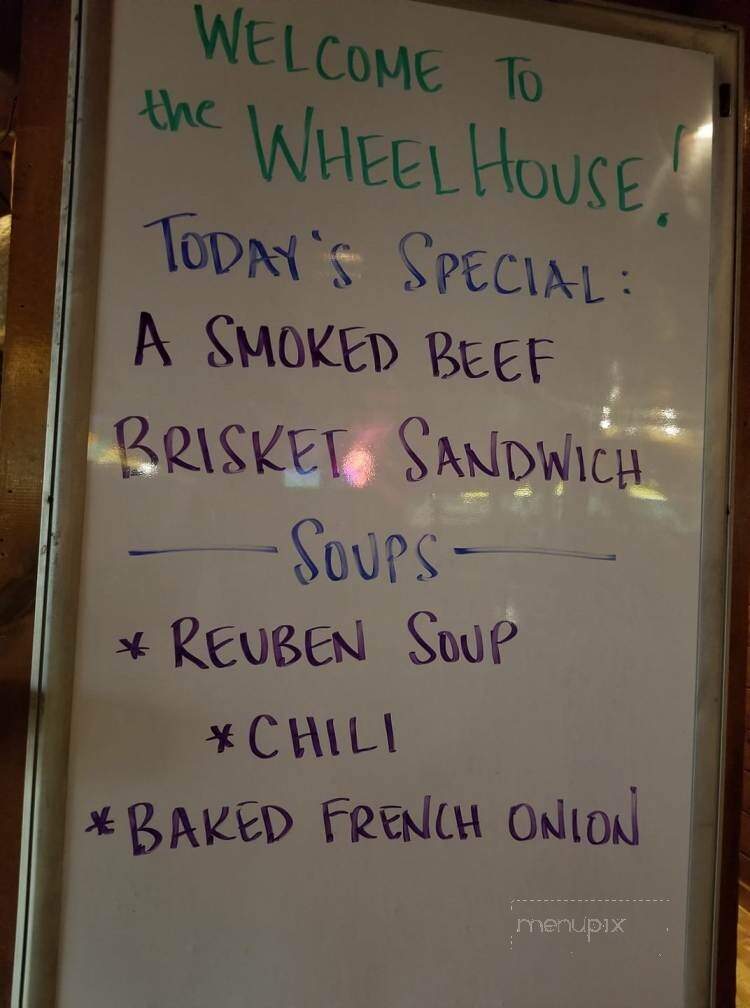 WELCOME TO
the WHEELHOUSE!
TODAY'S SPECIAL:
A SMOKED BEEF
BRISKET SANDWICH
SOUPS
* REUBEN SOUP
* CHILI
* BAKED FRENCH ONION
menupix